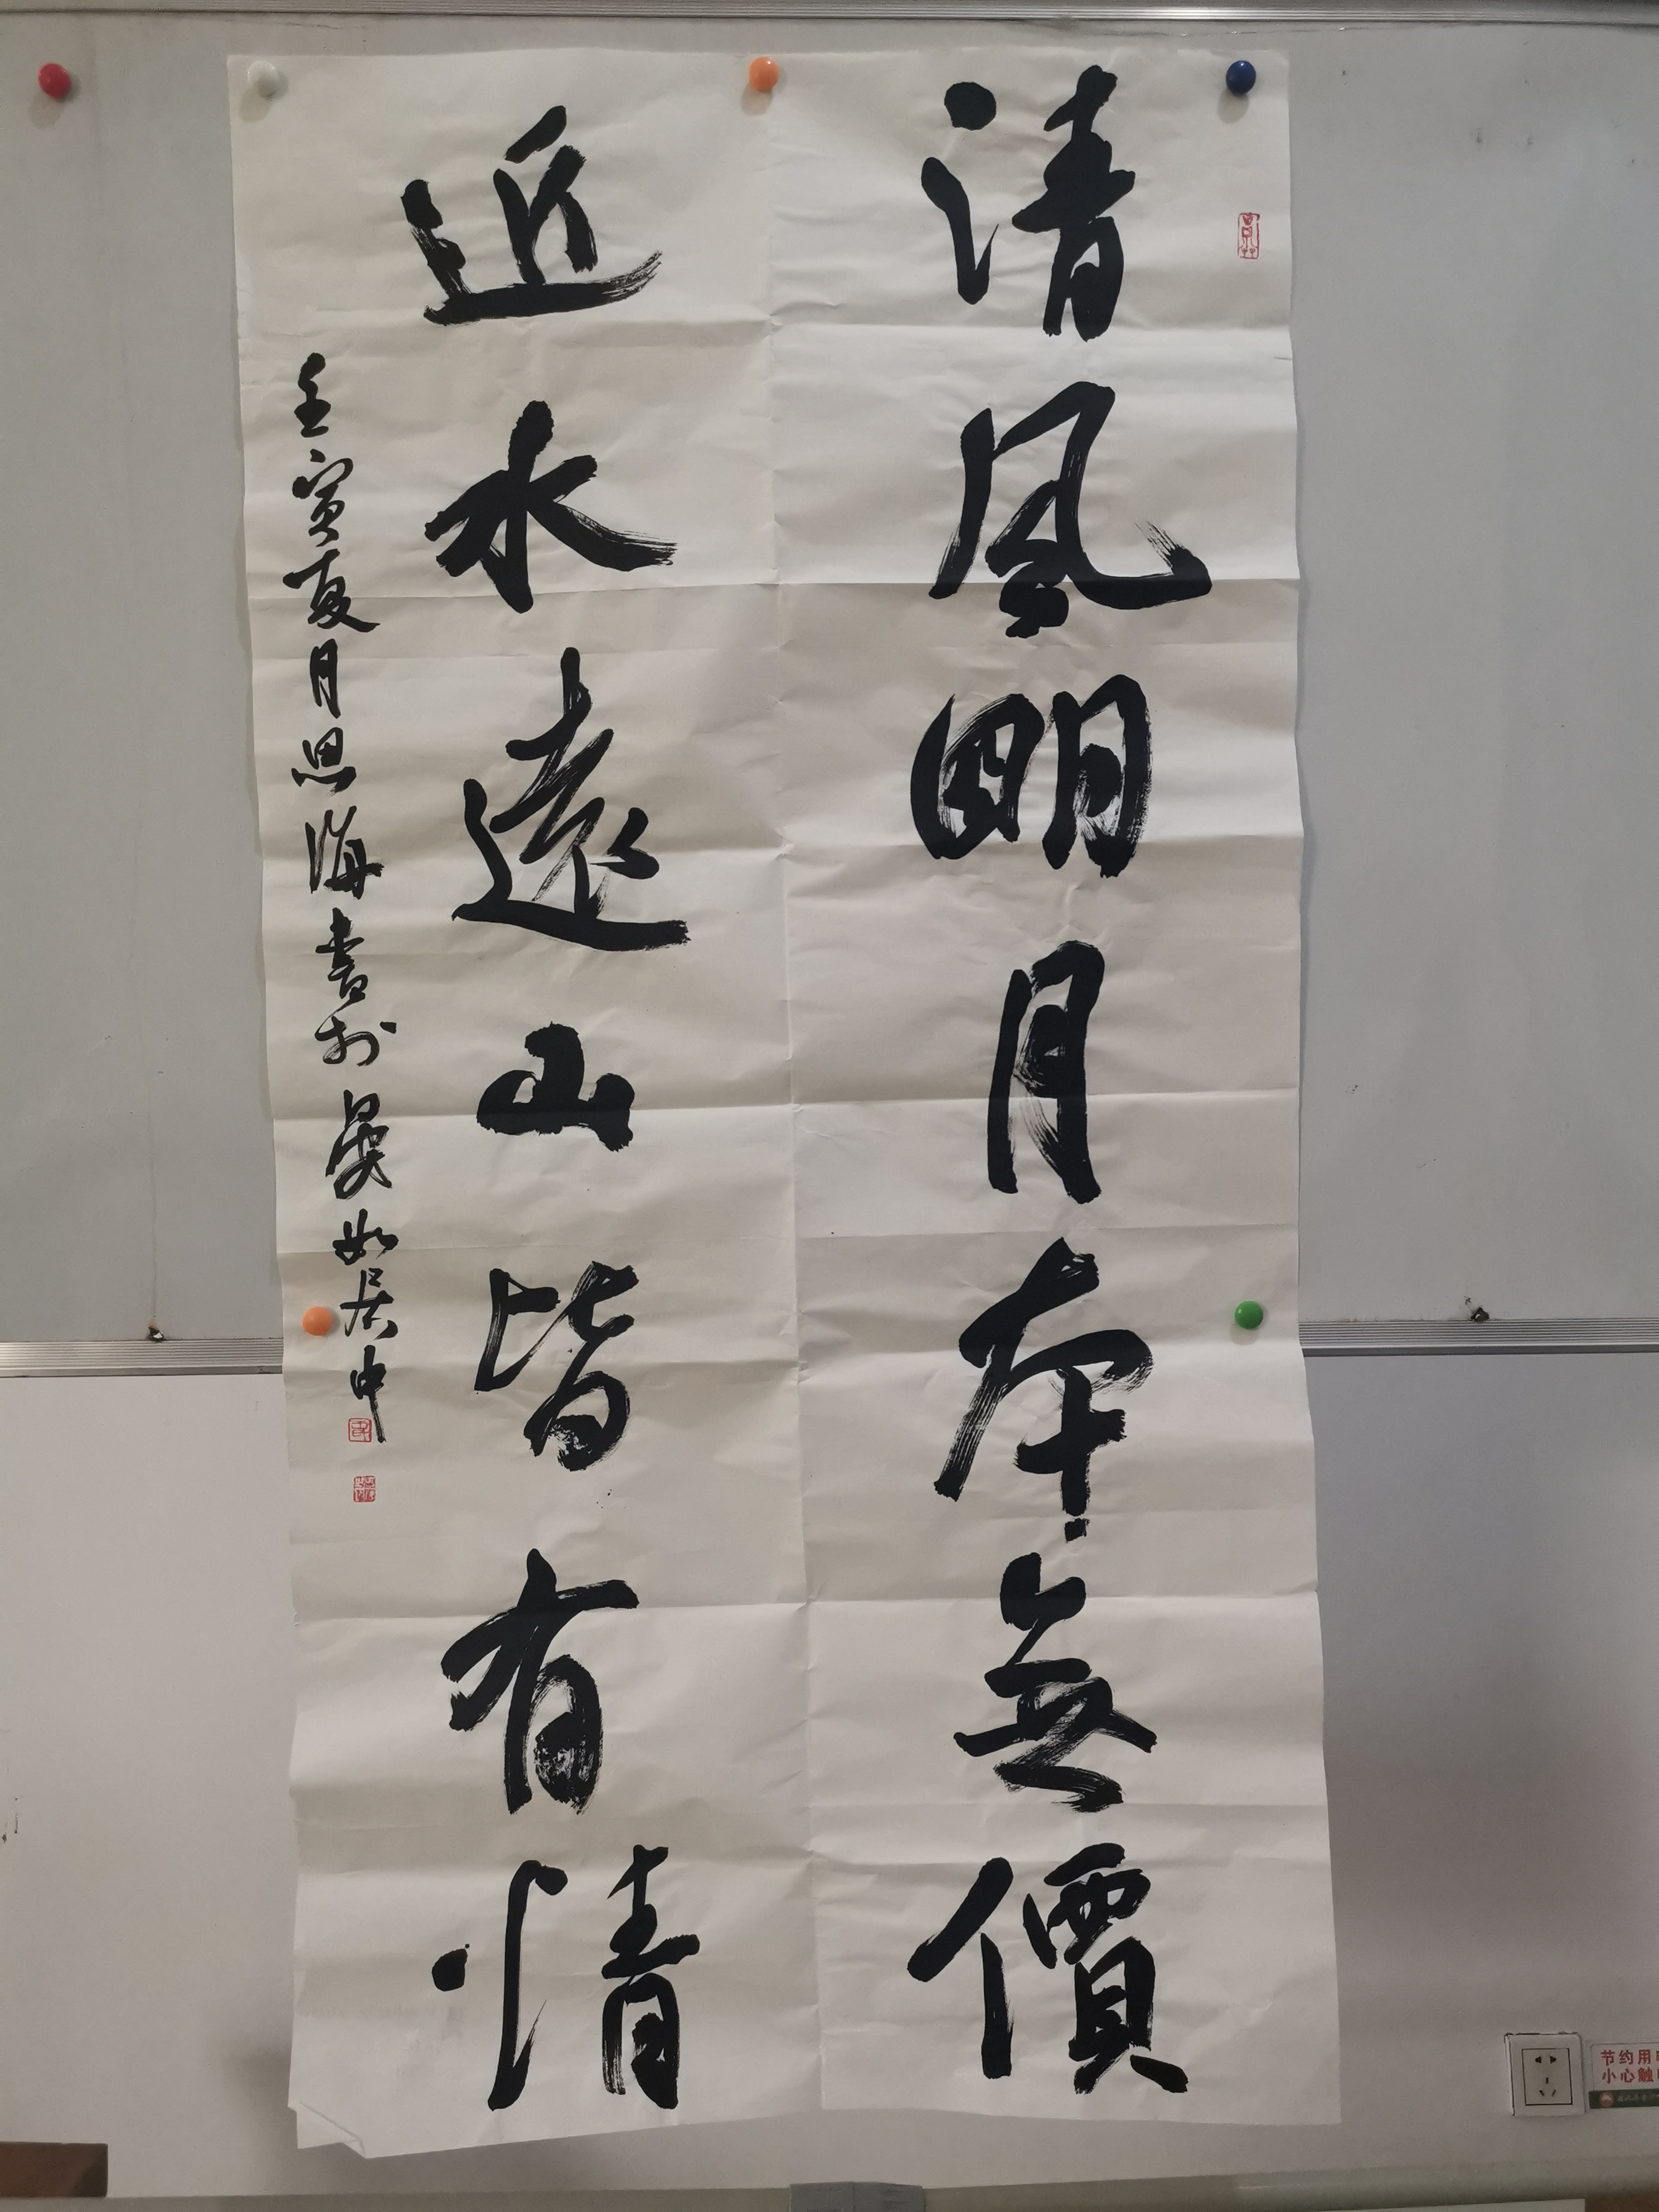 清風明月本無價
近水遠山皆有情
壬寅夏月思海書於晏如居中
节约用
小心触